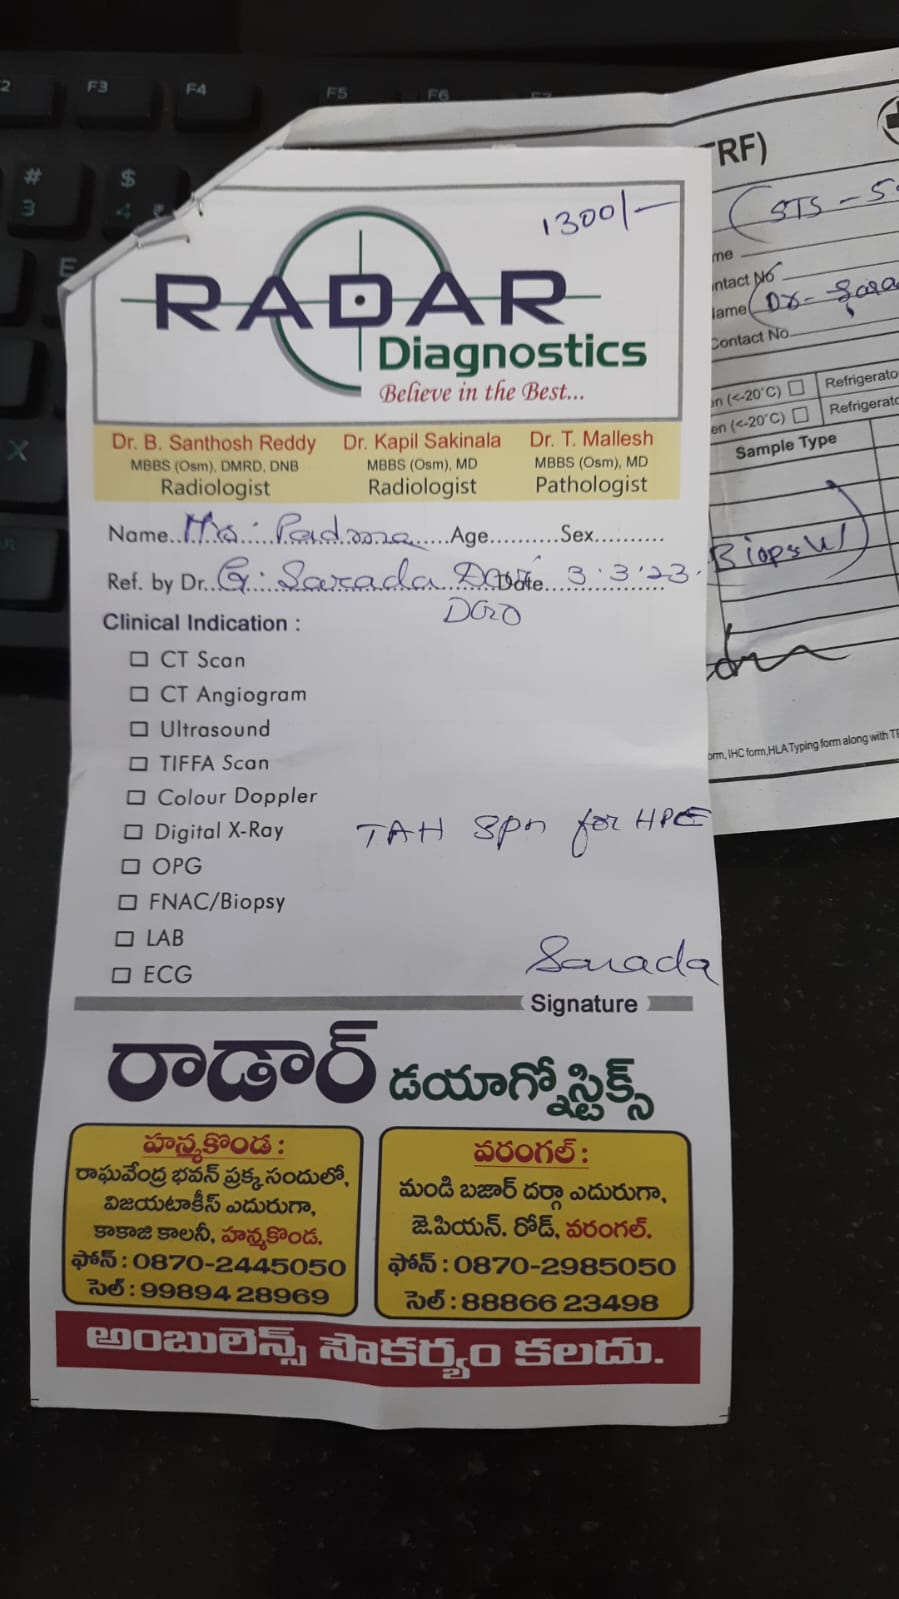 F3 F4 F5 F6
#
3
$
4
E
X
1300/-
RADAR
Diagnostics
Believe in the Best...
Dr. B. Santhosh Reddy Dr. Kapil Sakinala Dr. T. Mallesh
MBBS (Osm), DMRD, DNB MBBS (Osm), MD MBBS (Osm), MD
Radiologist Radiologist Pathologist
Name..Mrs. Padma.....Age..........Sex..........
Ref. by Dr..G. Sarada Devi Date..3.3.23.
DGO
Clinical Indication :
☐ CT Scan
☐ CT Angiogram
☐ Ultrasound
☐ TIFFA Scan
☐ Colour Doppler
☐ Digital X-Ray
TAH spn for HPE
☐ OPG
☐ FNAC/Biopsy
☐ LAB
☐ ECG
Sarada
Signature
రాడార్ డయాగ్నోస్టిక్స్
హన్మకొండ :
రాఘవేంద్ర భవన్ ప్రక్క సందులో,
విజయటాకీస్ ఎదురుగా,
కాకాజి కాలనీ, హన్మకొండ.
ఫోన్ : 0870-2445050
సెల్ : 99894 28969
వరంగల్ :
మండి బజార్ దర్గా ఎదురుగా,
జె.పియన్. రోడ్, వరంగల్.
ఫోన్ : 0870-2985050
సెల్ : 88866 23498
అంబులెన్స్ సౌకర్యం కలదు.
TRF)
(STS - 5
me
ntact No
lame (Dr- Sara
Contact No
en (<-20°C) ☐ Refrigerate
en (<-20°C) ☐ Refrigerate
Sample Type
Biopsy)
orm, IHC form,HLA Typing form along with TR